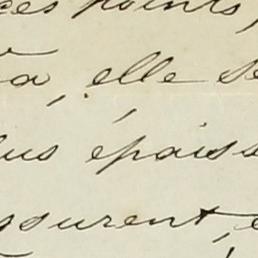 ces points,
a, elle se
us épaiss
ssurent, e